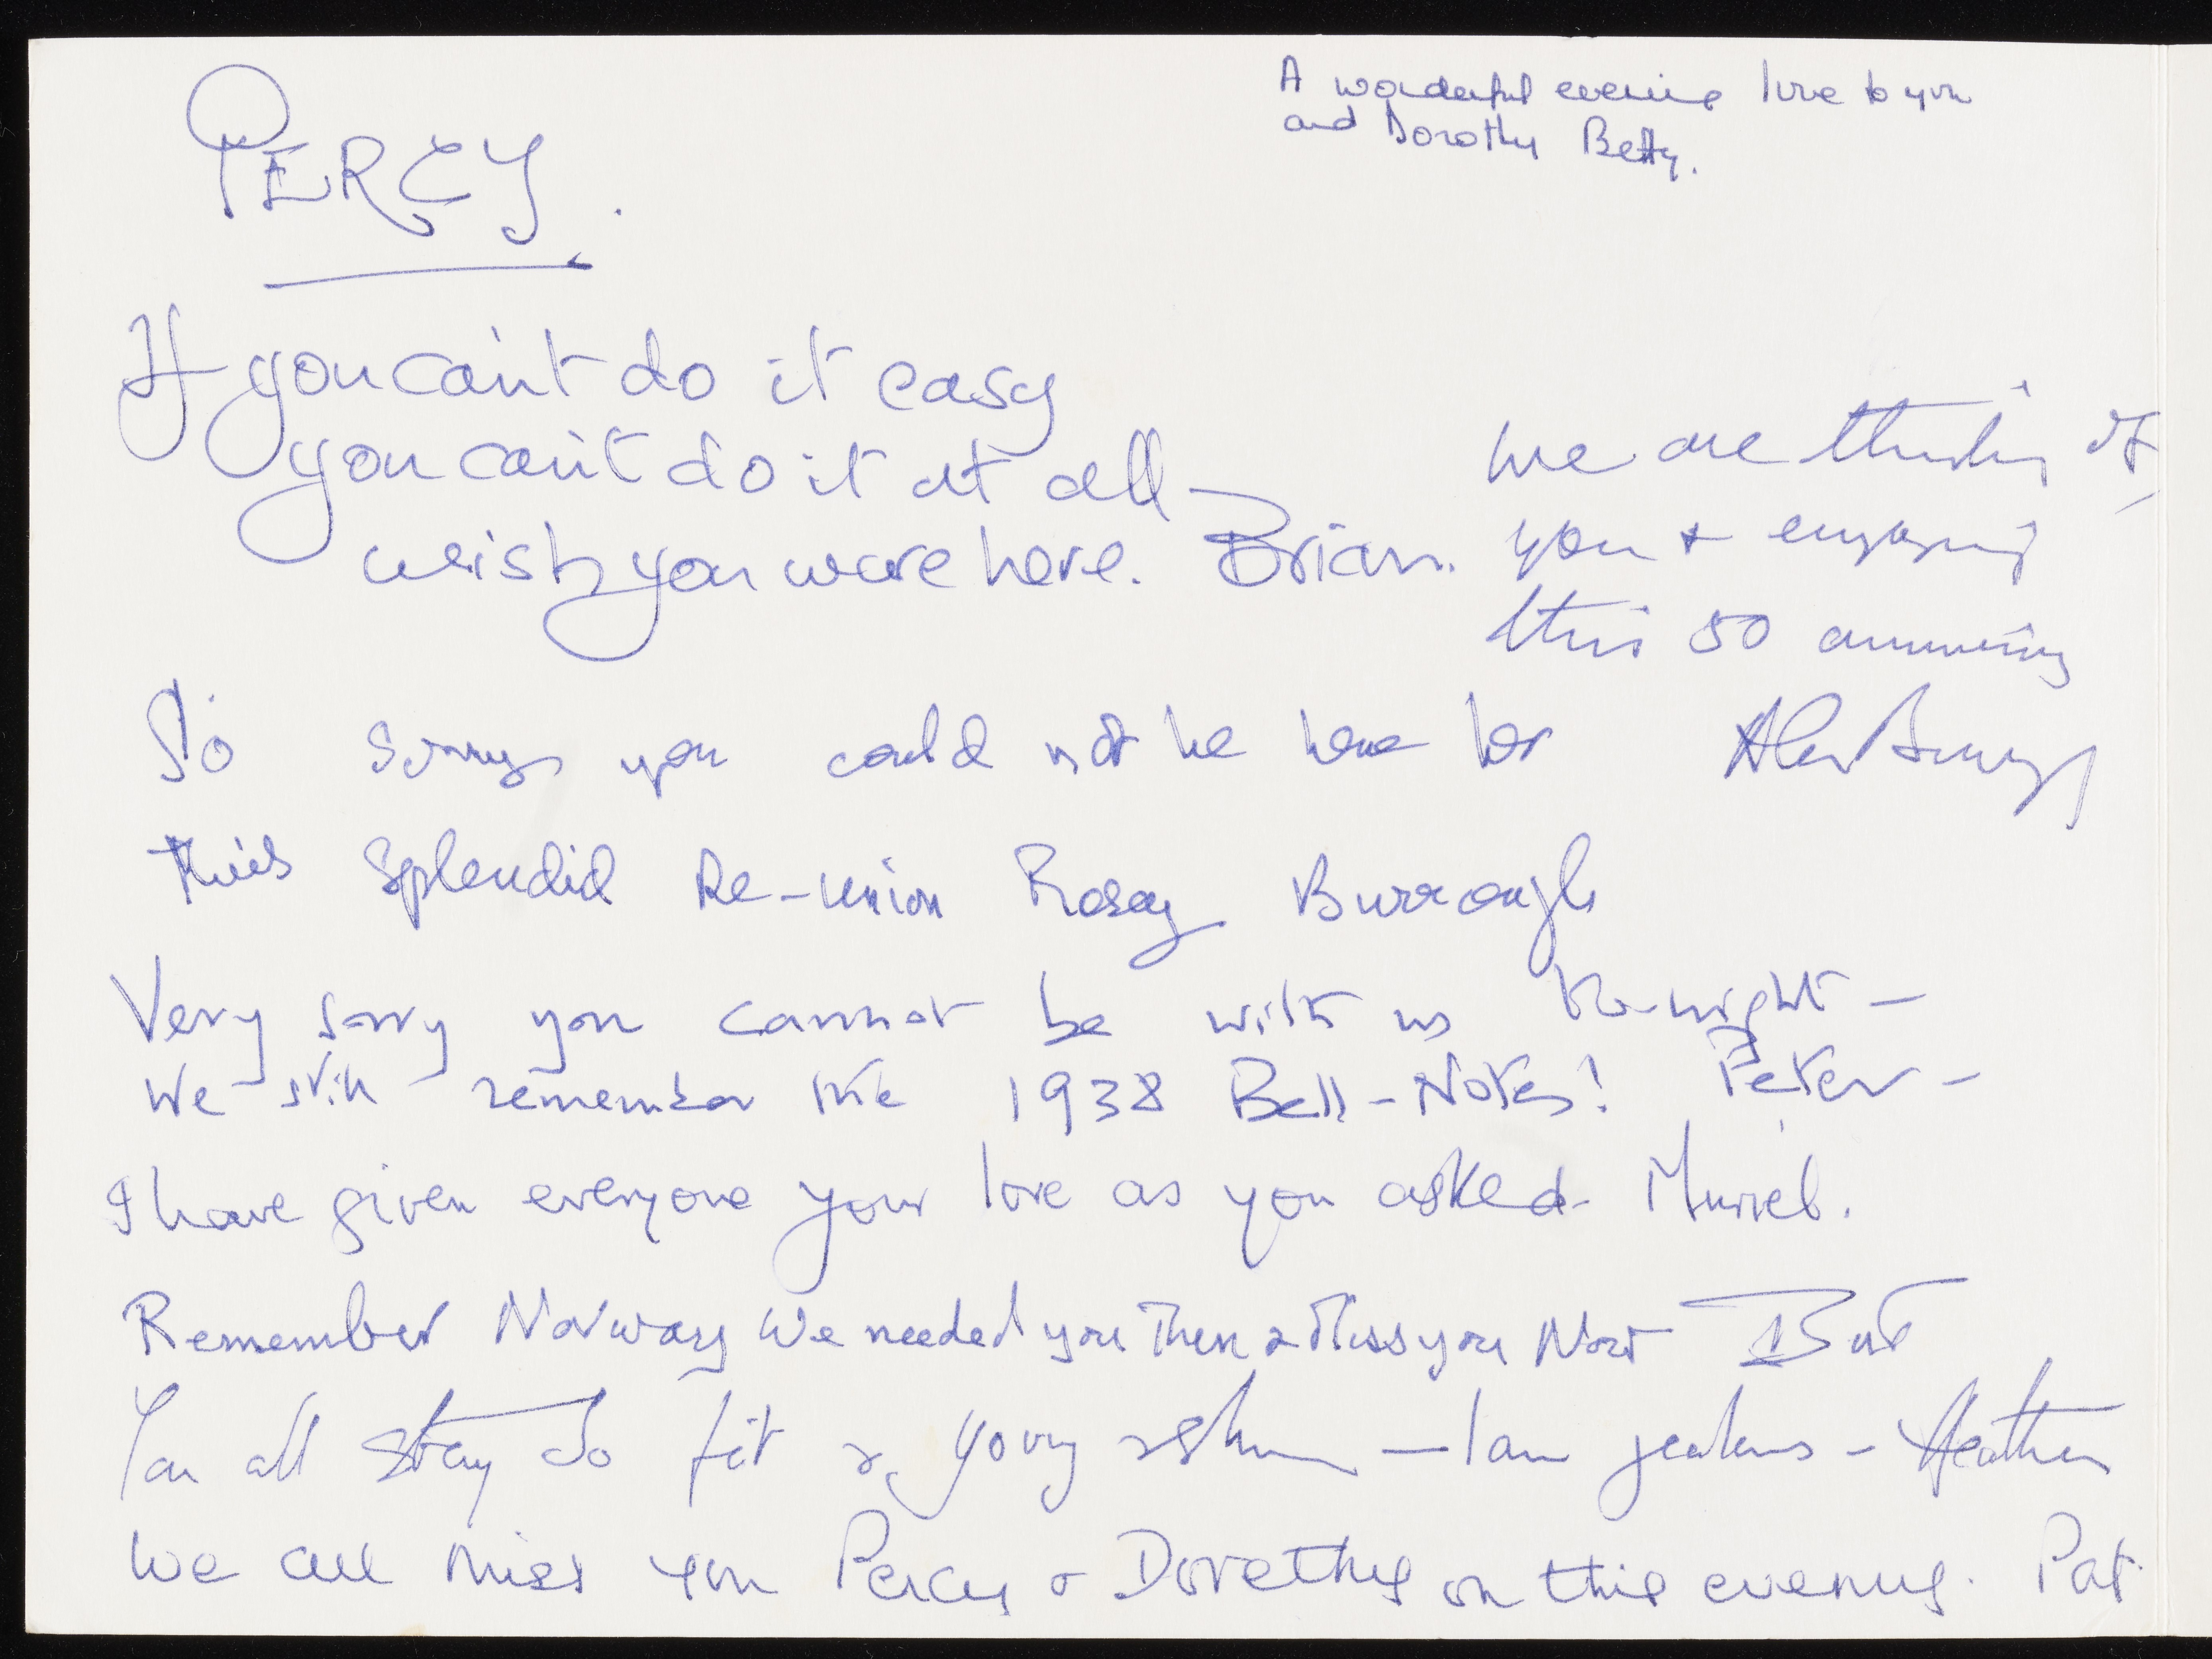 PERCY.
A wonderful evening love to you
and Dorothy Betty.
If you can't do it easy
you can't do it at all –
wish you were here. Brian.
We are thinking of
you & enjoying
this 50 anniversary
Alex
So sorry you could not be here for
this splendid Re-union Rosay Burrough
Very sorry you cannot be with us to-night –
We still remember the 1938 Bell-Notes! Peter –
I have given everyone your love as you asked. Muriel.
Remember Norway We needed you Then & Miss you Now
You all stay so fit & young & – Ian – Heather
We all miss you Percy & Dorothy on this evening. Pat